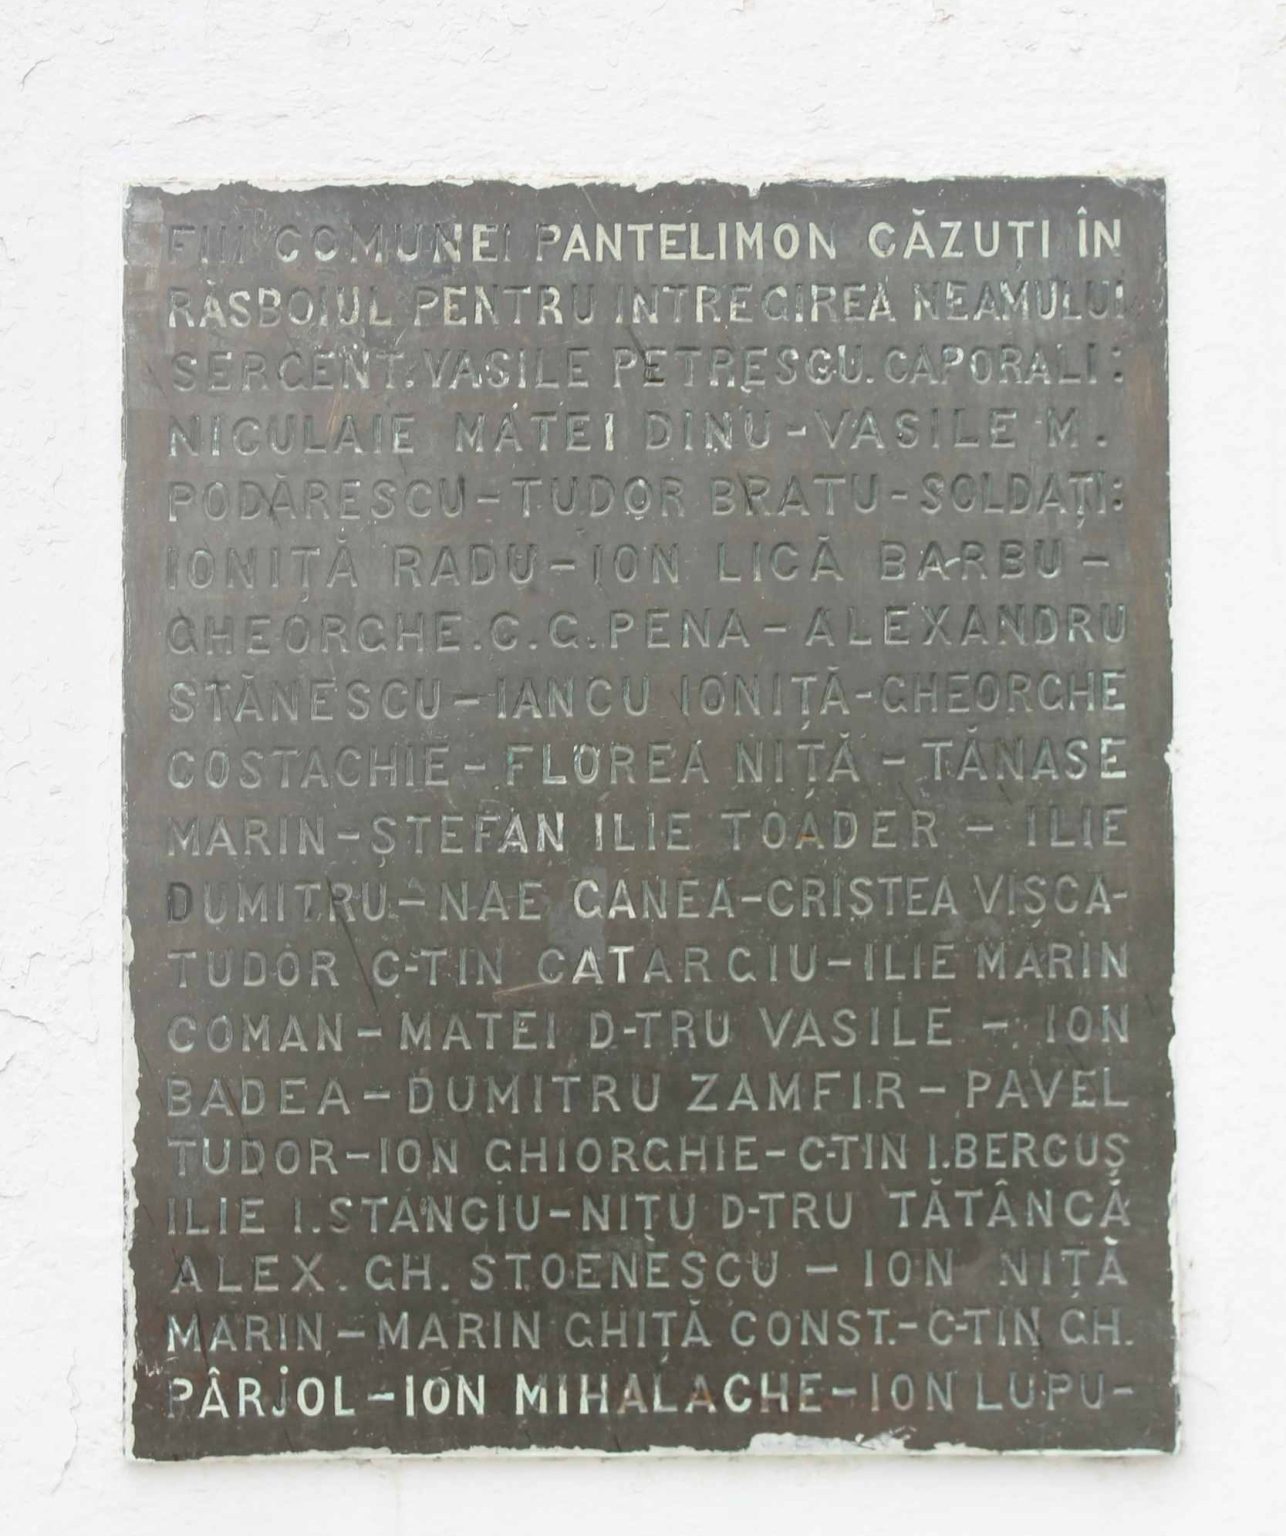 FIII COMUNEI PANTELIMON CĂZUȚI ÎN
RĂSBOIUL PENTRU INTREGIREA NEAMULUI
SERGENT. VASILE PETRESCU. CAPORALI:
NICULAIE MATEI DINU - VASILE M.
PODĂRESCU - TUDOR BRATU - SOLDAȚI:
IONIȚĂ RADU - ION LICĂ BARBU -
GHEORGHE. C. G. PENA - ALEXANDRU
STĂNESCU - IANCU IONIȚĂ - GHEORGHE
COSTACHIE - FLOREA NIȚĂ - TĂNASE
MARIN - ȘTEFAN ILIE TOADER - ILIE
DUMITRU - NAE GANEA - CRISTEA VIȘCA -
TUDOR C-TIN CATARGIU - ILIE MARIN
COMAN - MATEI D-TRU VASILE - ION
BADEA - DUMITRU ZAMFIR - PAVEL
TUDOR - ION GHIORGHIE - C-TIN I. BERCUȘ
ILIE I. STANCIU - NIȚU D-TRU TĂTÂNCĂ
ALEX. GH. STOENESCU - ION NIȚĂ
MARIN - MARIN GHIȚĂ CONST. - C-TIN GH.
PÂRJOL - ION MIHALACHE - ION LUPU -